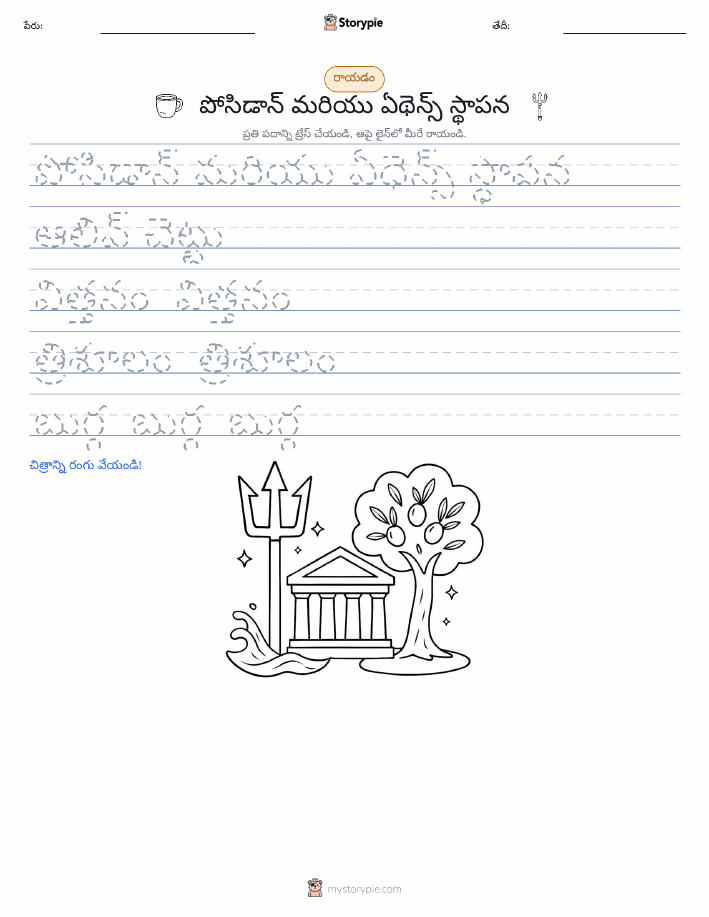 పేరు:
Storypie
తేదీ:
రాయడం
పోసిడాన్ మరియు ఏథెన్స్ స్థాపన
ప్రతి పదాన్ని ట్రేస్ చేయండి, ఆపై లైన్‌లో మీరే రాయండి.
పోసిడాన్ మరియు ఏథెన్స్ స్థాపన
ఆలివ్ చెట్టు
విత్తనం విత్తనం
త్రిశూలం త్రిశూలం
బుగ్గ బుగ్గ బుగ్గ
చిత్రాన్ని రంగు వేయండి!
mystorypie.com